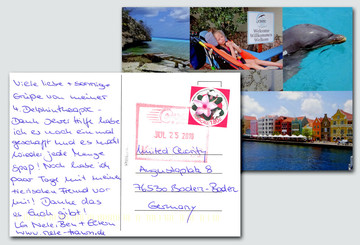 Welcome
Willkommen
Viele liebe + sonnige
Grüße von meiner
4. Delphintherapie -
Dank Eurer Hilfe habe
ich es noch einmal
geschafft und es macht
wieder jede Menge
Spaß! Noch habe ich
paar Tage mit meinem
tierischen Freund vor
mir! Danke das
es Euch gibt!
LG Nele, Ben + Eltern
www.nele-traum.de
JUL 25 2011
United Charity
Augustaplatz 8
76530 Baden-Baden
Germany